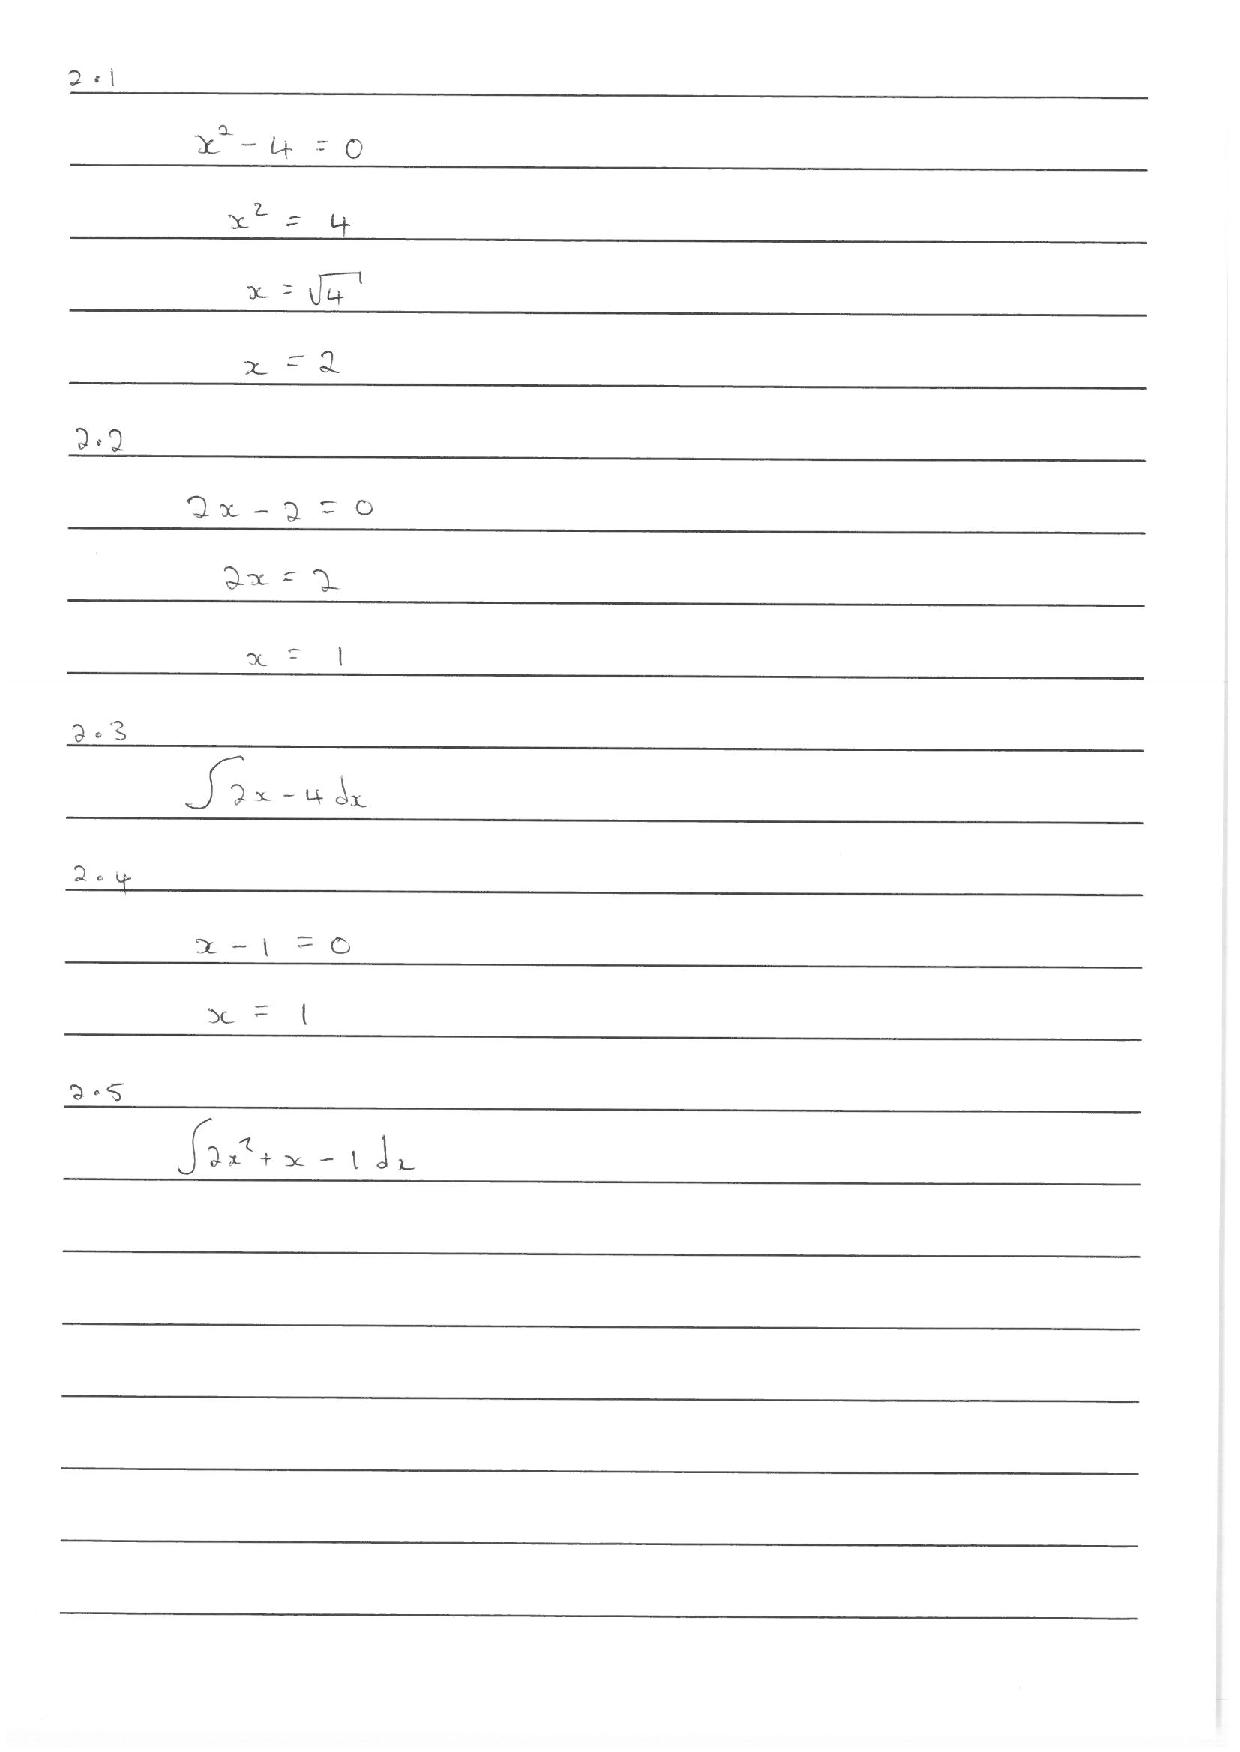 2.1
x² - 4 = 0
x² = 4
x = √4
x = 2
2.2
2x - 2 = 0
2x = 2
x = 1
2.3
∫2x - 4 dx
2.4
x - 1 = 0
x = 1
2.5
∫2x² + x - 1 dx